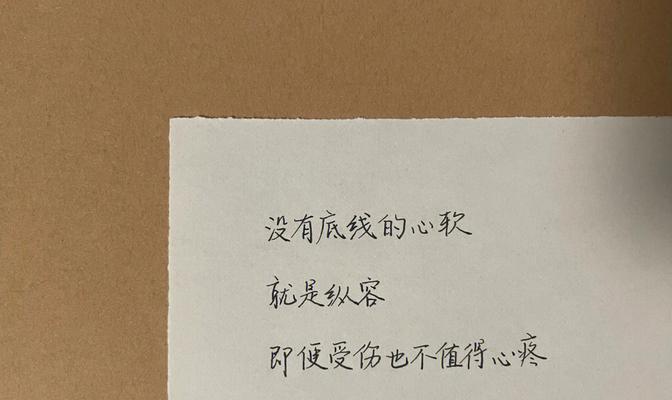 没有底线的心软
就是纵容
即便受伤也不值得心疼